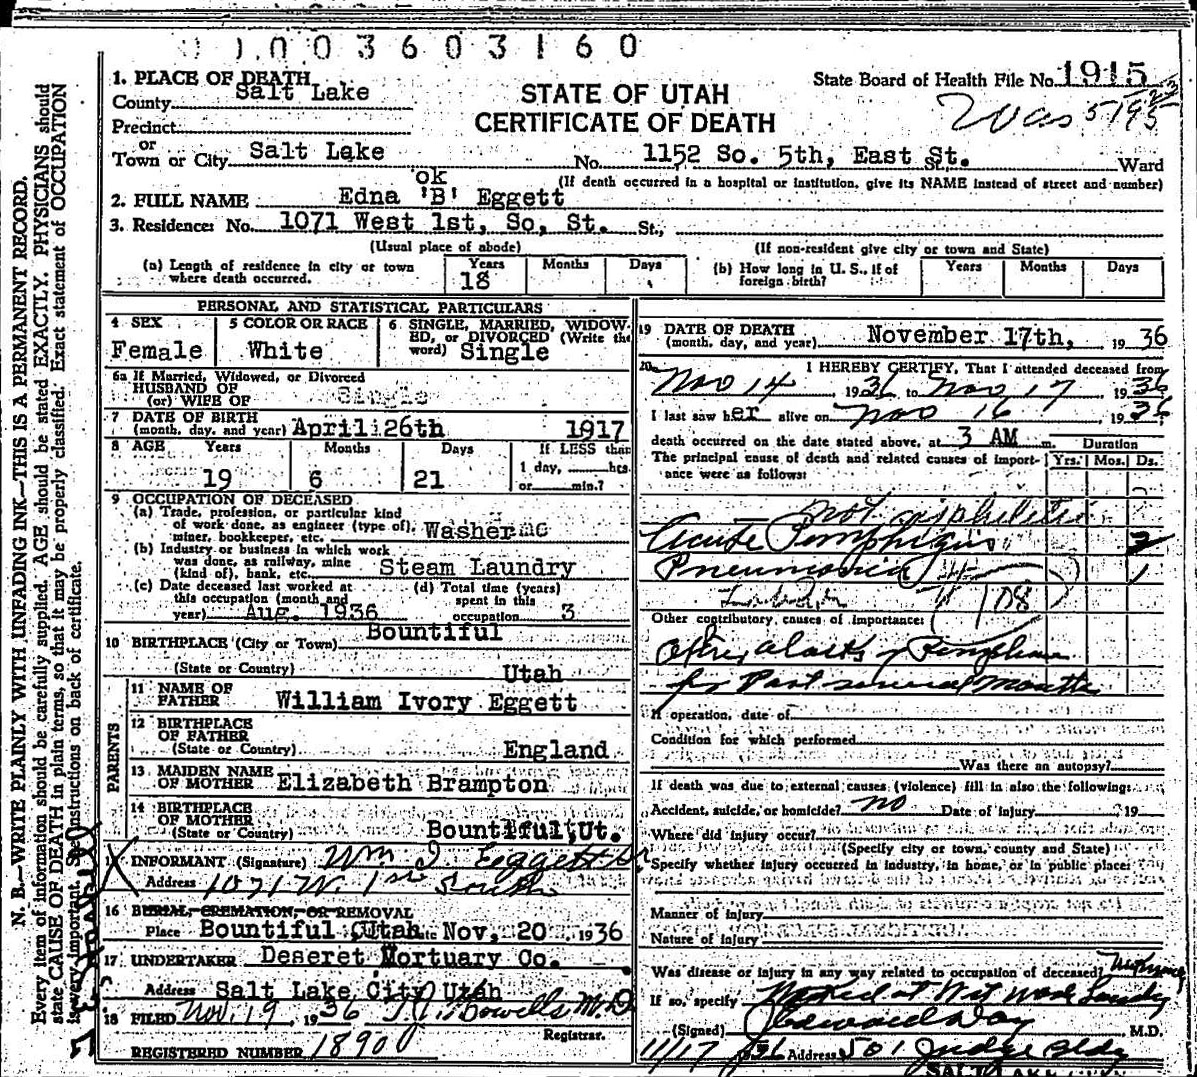 0 1 0 0 3 6 0 3 1 6 0
1. PLACE OF DEATH
County Salt Lake
Precinct
or
Town or City Salt Lake
STATE OF UTAH
CERTIFICATE OF DEATH
State Board of Health File No. 1915
No. 1152 So. 5th, East St. Ward
(If death occurred in a hospital or institution, give its NAME instead of street and number)
ok
2. FULL NAME Edna 'B' Eggett
3. Residence: No. 1071 West 1st, So, St. St.,
(Usual place of abode) (If non-resident give city or town and State)
(a) Length of residence in city or town where death occurred. Years 18 Months Days
(b) How long in U. S., if of foreign birth? Years Months Days
PERSONAL AND STATISTICAL PARTICULARS
4 SEX Female
5 COLOR OR RACE White
6 SINGLE, MARRIED, WIDOWED, or DIVORCED (Write the word) Single
6a If Married, Widowed, or Divorced
HUSBAND OF
(or) WIFE OF Single
7 DATE OF BIRTH
(month, day, and year) April 26th 1917
8 AGE Years Months Days If LESS than
19 6 21 1 day, hrs.
or min.?
9 OCCUPATION OF DECEASED
(a) Trade, profession, or particular kind
of work done, as engineer (type of),
miner, bookkeeper, etc. Washer
(b) Industry or business in which work
was done, as railway, mine
(kind of), bank, etc. Steam Laundry
(c) Date deceased last worked at
this occupation (month and
year) Aug. 1936
(d) Total time (years)
spent in this
occupation 3
10 BIRTHPLACE (City or Town) Bountiful
(State or Country) Utah
PARENTS
11 NAME OF
FATHER William Ivory Eggett
12 BIRTHPLACE
OF FATHER
(State or Country) England
13 MAIDEN NAME
OF MOTHER Elizabeth Brampton
14 BIRTHPLACE
OF MOTHER
(State or Country) Bountiful, Ut.
INFORMANT (Signature) Wm I. Eggett Sr
Address 1071 W. 1st South
16 BURIAL, CREMATION, OR REMOVAL
Place Bountiful, Utah Date Nov, 20 1936
17 UNDERTAKER Deseret Mortuary Co.
Address Salt Lake City Utah
18 FILED Nov. 19, 1936 M.D.
Registrar.
REGISTERED NUMBER 1890
19 DATE OF DEATH
(month, day, and year) November 17th, 1936
20 I HEREBY CERTIFY, That I attended deceased from
Nov 14 1936 to Nov 17 1936
I last saw her alive on Nov 16 1936
death occurred on the date stated above, at 3 AM m. Duration
The principal cause of death and related causes of importance were as follows: Yrs. Mos. Ds.
not syphilitic
Acute Pemphigus 3
Pneumonia 1
108
Other contributory causes of importance:
attacks of
for Past several months
If operation, date of
Condition for which performed
Was there an autopsy?
If death was due to external causes (violence) fill in also the following:
Accident, suicide, or homicide? no Date of injury 19
Where did injury occur?
(Specify city or town, county and State)
Specify whether injury occurred in industry, in home, or in public place:
Manner of injury
Nature of injury
Was disease or injury in any way related to occupation of deceased?
If so, specify Worked at Laundry
(Signed) J Edward Day M.D.
11/17 1936 Address 501 Judge Bldg
SALT LAKE CITY
N. B.—WRITE PLAINLY WITH UNFADING INK—THIS IS A PERMANENT RECORD.
Every item of information should be carefully supplied. AGE should be stated EXACTLY. PHYSICIANS should
state CAUSE OF DEATH in plain terms, so that it may be properly classified. Exact statement of OCCUPATION
is very important. See instructions on back of certificate.